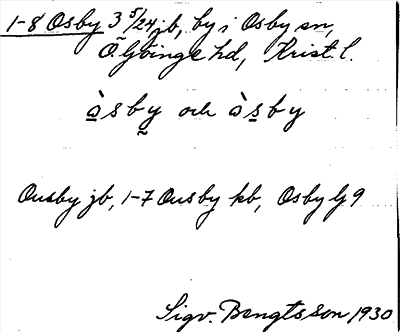 1-8 Osby 3 5/24 jb, by i Osby sn,
Ö. Göinge hd, Krist. l.
àsby och àsby
Ousby jb, 1-7 Ousby kb, Osby G 9
Sigv. Bengtsson 1930